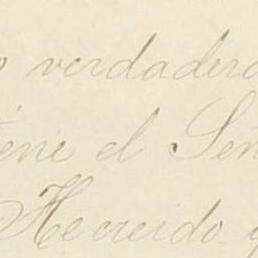 o verdadera
iene el Señ
He creido q